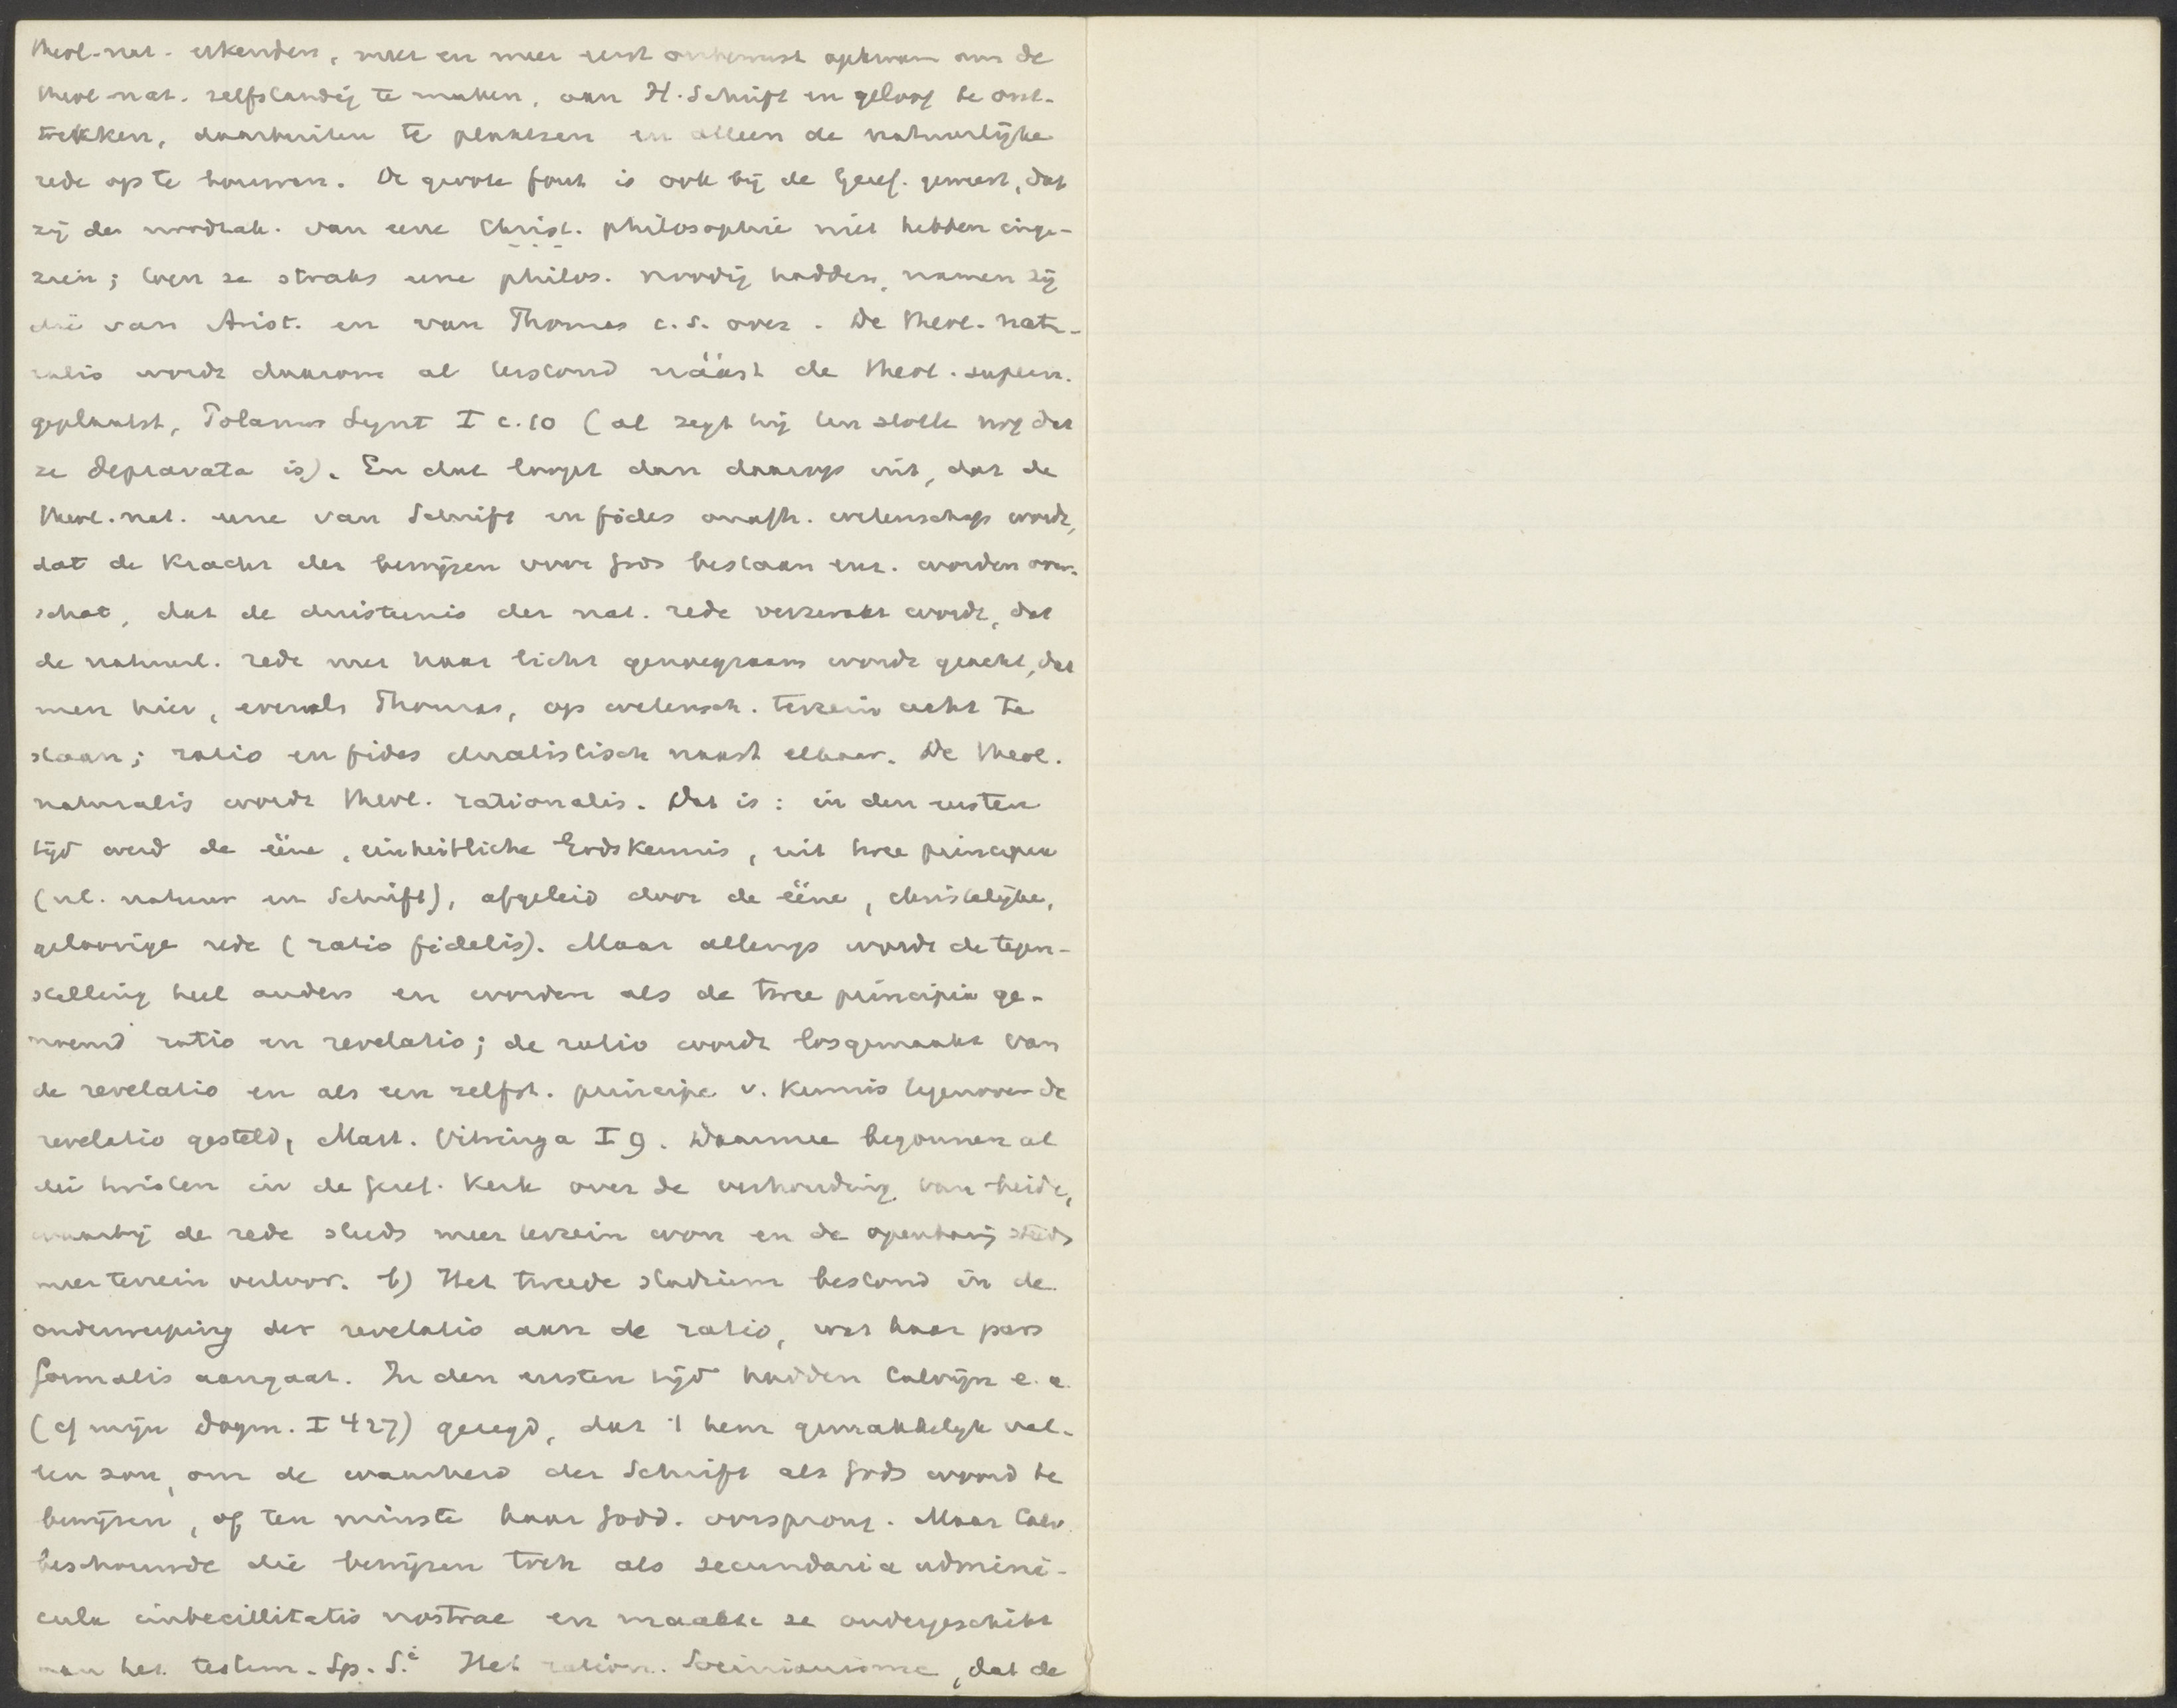 theol. nat. erkenden, meer en meer eerst onbewust opkwam om de
theol. nat. zelfstandig te maken, aan H. Schrift en geloof te ont-
trekken, daarbuiten te plaatsen en alleen de natuurlijke
rede op te bouwen. De groote fout is ook bij de Geref. geweest, dat
zij de noodzak. van eene Christ. philosophie niet hebben inge-
zien; toen ze straks eene philos. noodig hadden, namen zij
die van Arist. en van Thomas c.s. over. De theol. natu-
ralis wordt daarom al terstond náást de theol. supern.
geplaatst, Polanus Synt I c. 10 (al zegt hij ten slotte nog dat
ze depravata is). En dat loopt dan daarop uit, dat de
theol. nat. eene van Schrift en fides onafh. wetenschap wordt,
dat de kracht der bewijzen voor Gods bestaan enz. worden over-
schat, dat de duisternis der nat. rede verzwakt wordt, dat
de natuurl. rede met haar licht genoegzaam wordt geacht, dat
men hier, evenals Thomas, op wetensch. terrein acht te
staan; ratio en fides dualistisch naast elkaar. De theol.
naturalis wordt theol. rationalis. Dat is: in den eersten
tijd werd de ééne, einheitliche Godskennis, uit twee principia
(nl. natuur en Schrift), afgeleid door de ééne, christelijke,
geloovige rede (ratio fidelis). Maar allengs wordt de tegen-
stelling heel anders en worden als de twee principia ge-
noemd ratio en revelatio; de ratio wordt losgemaakt van
de revelatio en als een zelfst. principe v. kennis tegenover de
revelatio gesteld, Mast. Vitringa I 9. Daarmee begonnen al
die twisten in de Geref. Kerk over de verhouding van beide,
waarbij de rede steeds meer terrein won en de openbaring steeds
meer terrein verloor. b) Het tweede stadium bestond in de
onderwerping der revelatio aan de ratio, wat haar pars
formalis aangaat. In den eersten tijd hadden Calvijn e. a.
(cf mijn Dogm. I 427) gezegd, dat 't hem gemakkelijk val-
len zou, om de waarheid der Schrift als Gods woord te
bewijzen, of ten minste haar Godd. oorsprong. Maar Calv.
beschouwde die bewijzen toch als secundaria admini-
cula imbecillitatis nostrae en maakte ze ondergeschikt
aan het testim. Sp. S.i Het ration. Socinianisme, dat de